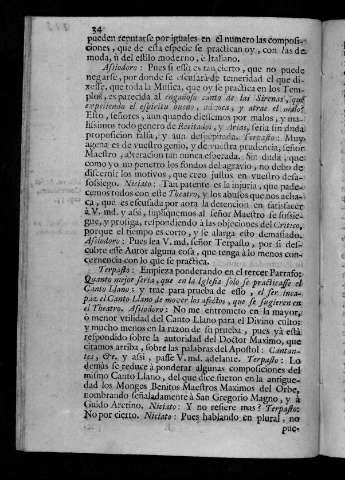 34
pueden reputarse por iguales en el numero las composi-
ciones, que de esta especie se practican oy, con las de
moda, ù del estilo moderno, è Italiano.
Asiiodoro: Pues si esso es tan cierto, que no puede
negarse, por donde se escusarà de temeridad el que di-
xesse, que toda la Musica, que oy se practica en los Tem-
plos, es parecida al engañoso canto de las Sirenas, que
Esto, señores, aun quando diessemos por malos, y ma-
lissimos todo genero de Recitados, y Arias, seria sin duda
proposicion falsa, y aun despropiada. Terpasto: Muy
agena es de vuestro genio, y de vuestra prudencia, señor
Maestro, alteracion tan nunca esperada. Sin duda, que
como yo no penetro los fondos del agravio, no debo de
discernir los motivos, que creo justos en vuestro desa-
sossiego. Niciato: Tan patente es la injuria, que pade-
cemos todos con este Theatro, y los abusos que nos acha-
ca, que es escusada por aora la detencion en satisfacer
à V. md. y assi, supliquemos al señor Maestro se sossie-
gue, y prosiga, respondiendo à las objeciones del Critico,
porque el tiempo es corto, y se alarga esto demasiado.
Assiodoro: Pues lea V. md. señor Terpasto, por si des-
cubre esse Autor alguna cosa, que tenga à lo menos con-
cernencia con lo que se practica.
Terpasto: Empieza ponderando en el tercer Parrafo:
Quanto mejor seria, que en la Iglesia solo se practicasse el
Canto Llano: y trae para prueba de esso, el ser inca-
paz el Canto Llano de mover los afectos, que se sugieren en
el Theatro. Assiodoro: No me entrometo en la mayor,
ò menor utilidad del Canto Llano para el Divino culto:
y mucho menos en la razon de su prueba, pues yà està
respondido sobre la autoridad del Doctor Maximo, que
citamos arriba, sobre las palabras del Apostol: Cantan-
tes, &c. y assi, passe V. md. adelante. Terpasto: Lo
demàs se reduce à ponderar algunas composiciones del
mismo Canto Llano, del que dice fueron en la antigue-
dad los Monges Benitos Maestros Maximos del Orbe,
nombrando señaladamente à San Gregorio Magno, y à
Guido Aretino. Niciato: Y no refiere mas? Terpasto:
No por cierto. Niciato: Pues hablando en plural, no
pue-